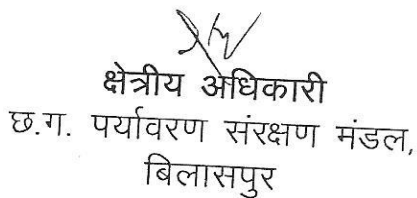 क्षेत्रीय अधिकारी
छ.ग. पर्यावरण संरक्षण मंडल,
बिलासपुर